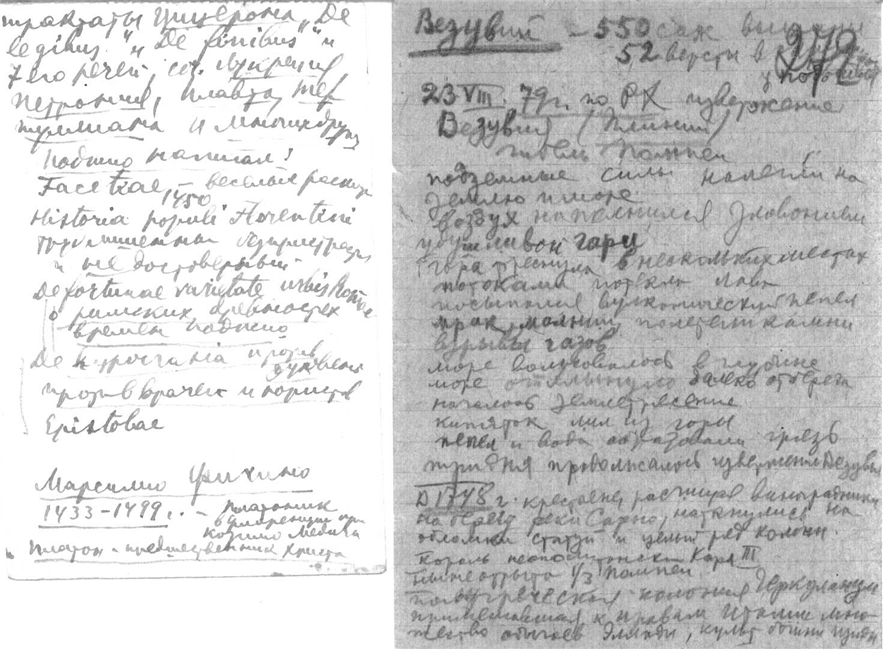 трактаты Цицерона „De
legibus" и „De finibus" и
7 его речей, соч. Лукреция,
Петрония, Плавта, Тер
туллиана и многих других
Поджио написал:
Facetiae – веселые расск
1450
Historia populi Florentini
и не достоверный
De fortunae varietate urbis Romae
о римских древностях
времен Поджио
De hypocrisia против
духовен
против врачей и юристов
Epistolae
Марсилио Фичино
1433–1499 г. – платоник
во Флоренции при
Козимо Медичи
Платон – предшественник Христа
Везувий – 550 саж вышины
52 версты в
272
23 VIII. 79 г. по РХ извержение
Везувия (Плиний)
гибель Помпеи
подземные силы налегли на
землю и море
воздух наполнился зловонием
удушливой гари
гора треснула в нескольких местах
потоками потекла лава
посыпался вулканический пепел
мрак, молнии, полетели камни
взрывы газов
море волновалось в глубине
море отхлынуло далеко от берега
началось землетрясение
кипяток лил из горы
пепел и вода образовали грязь
три дня продолжалось извержение Везувия
В 1748 г. крестьяне, расширяя виноградники
на берегу реки Сарно, наткнулись на
обломки статуи и целый ряд колонн.
Король неаполитанский Карл III
Ныне открыто 1/3 Помпеи.
Полугреческая колония Геркуланум
примешавшая к нравам Италии мно-
жество обычаев Эллады, культ